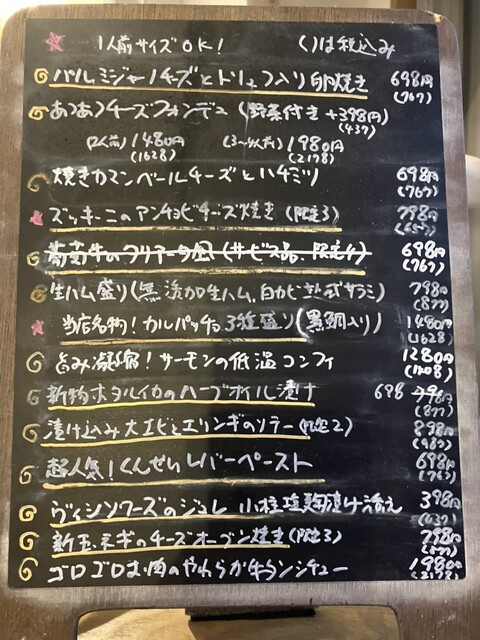 1人前サイズOK! ( )は税込み
パルミジャーノチーズとトリュフ入り卵焼き 698円 (767)
あつあつチーズフォンデュ (野菜付き +398円) (437)
(2人前) 1480円 (1628) (3〜4人前) 1980円 (2178)
焼きカマンベールチーズとハチミツ 698円 (767)
ズッキーニのアンチョビチーズ焼き (限定3) 798円
698円 (767)
生ハム盛り (無添加生ハム、白カビ熟式サラミ) 798円 (877)
当店名物! カルパッチョ3種盛り (黒鯛入り) 1480円 (1628)
旨み凝縮! サーモンの低温コンフィ 1280円 (1408)
新物ホタルイカのハーブオイル漬け 698 798円 (877)
漬け込み大エビとエリンギのソテー (限定2) 898円 (987)
超人気! くんせいレバーペースト 698円 (767)
ヴィシソワーズのジュレ 小柱塩麹漬け添え 398円 (437)
新玉ネギのチーズオーブン焼き (限定3) 798円 (877)
ゴロゴロお肉のやわらか牛タンシチュー 1980円 (2178)